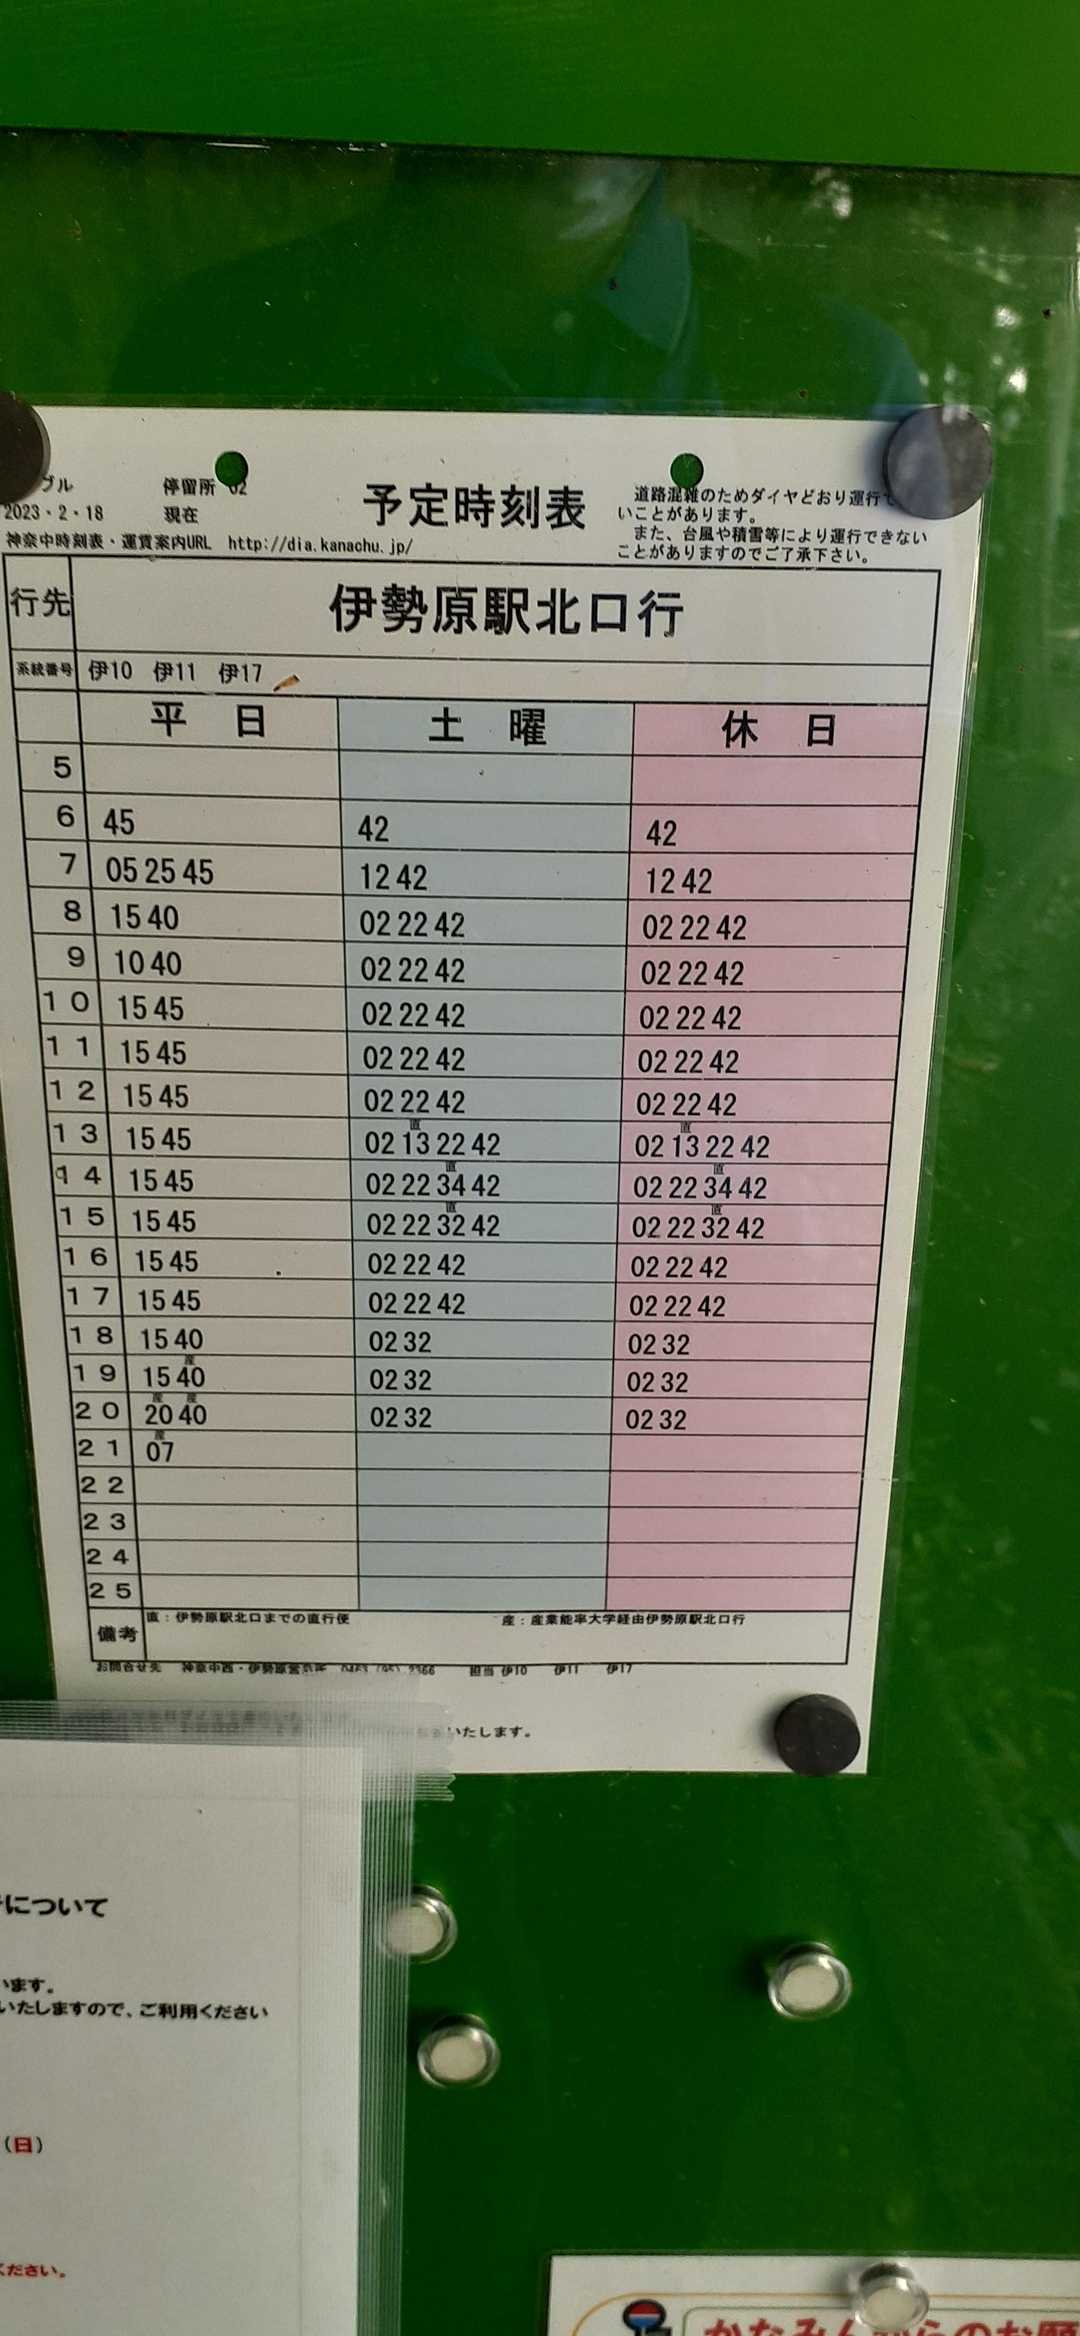 ブル 停留所 02
2023・2・18 現在
予定時刻表
道路混雑のためダイヤどおり運行で
いことがあります。
また、台風や積雪等により運行できない
ことがありますのでご了承下さい。
神奈中時刻表・運賃案内URL http://dia.kanachu.jp/
行先 伊勢原駅北口行
系統番号 伊10 伊11 伊17
平日 土曜 休日
5
6 45 42 42
7 05 25 45 12 42 12 42
8 15 40 02 22 42 02 22 42
9 10 40 02 22 42 02 22 42
10 15 45 02 22 42 02 22 42
11 15 45 02 22 42 02 22 42
12 15 45 02 22 42 02 22 42
直 直
13 15 45 02 13 22 42 02 13 22 42
直 直
14 15 45 02 22 34 42 02 22 34 42
直 直
15 15 45 02 22 32 42 02 22 32 42
16 15 45 02 22 42 02 22 42
17 15 45 02 22 42 02 22 42
18 15 40 02 32 02 32
産
19 15 40 02 32 02 32
産 産
20 20 40 02 32 02 32
産
21 07
22
23
24
25
備考 直：伊勢原駅北口までの直行便 産：産業能率大学経由伊勢原駅北口行
お問合せ先 神奈中西・伊勢原営業所 0463 (95) 2366 担当 伊10 伊11 伊17
いたします。
について
います。
いたしますので、ご利用ください
(日)
ください。
かなみんからのお願